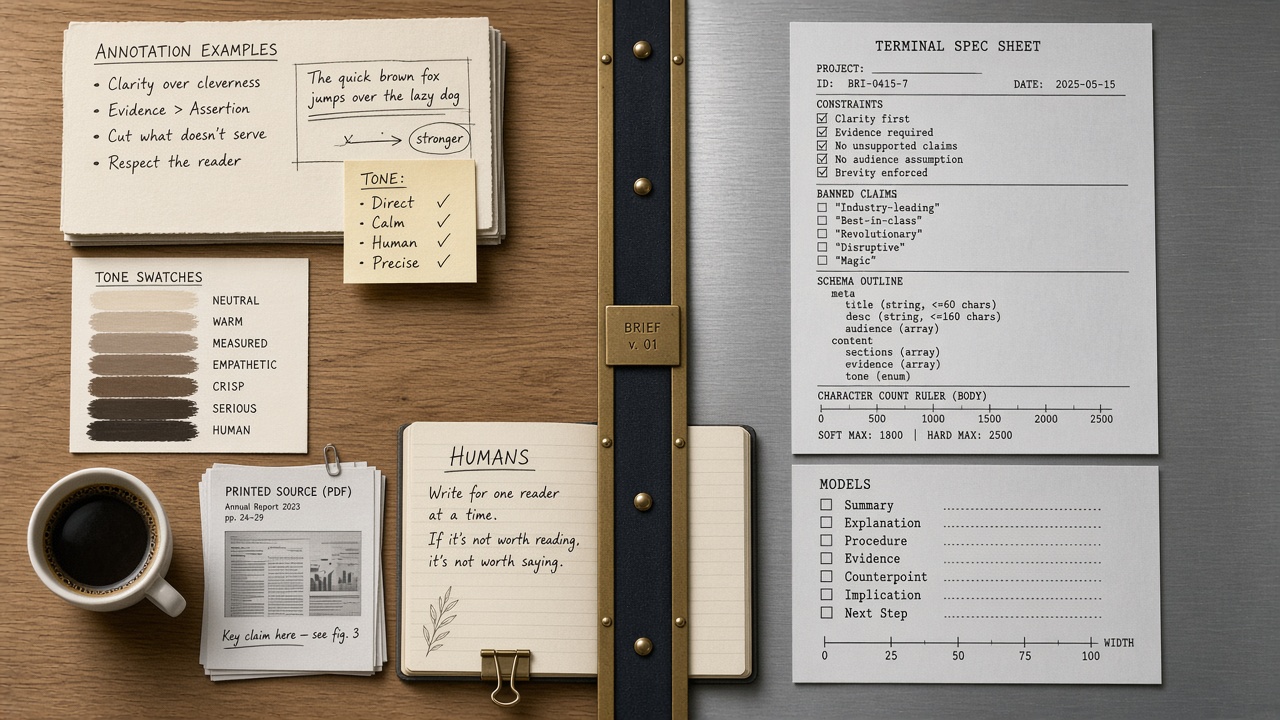 ANNOTATION EXAMPLES
• Clarity over cleverness
• Evidence > Assertion
• Cut what doesn't serve
• Respect the reader
The quick brown fox
jumps over the lazy dog
x → stronger
TONE:
• Direct ✓
• Calm ✓
• Human ✓
• Precise ✓
TONE SWATCHES
NEUTRAL
WARM
MEASURED
EMPATHETIC
CRISP
SERIOUS
HUMAN
PRINTED SOURCE (PDF)
Annual Report 2023
pp. 24–29
Key claim here — see fig. 3
HUMANS
Write for one reader
at a time.
If it's not worth reading,
it's not worth saying.
BRIEF
v. 01
TERMINAL SPEC SHEET
PROJECT:
ID: BRI-0415-7 DATE: 2025-05-15
CONSTRAINTS
☑ Clarity first
☑ Evidence required
☑ No unsupported claims
☑ No audience assumption
☑ Brevity enforced
BANNED CLAIMS
☐ "Industry-leading"
☐ "Best-in-class"
☐ "Revolutionary"
☐ "Disruptive"
☐ "Magic"
SCHEMA OUTLINE
meta
title (string, <=60 chars)
desc (string, <=160 chars)
audience (array)
content
sections (array)
evidence (array)
tone (enum)
CHARACTER COUNT RULER (BODY)
0 500 1000 1500 2000 2500
SOFT MAX: 1800 | HARD MAX: 2500
MODELS
☐ Summary
☐ Explanation
☐ Procedure
☐ Evidence
☐ Counterpoint
☐ Implication
☐ Next Step
WIDTH
0 25 50 75 100